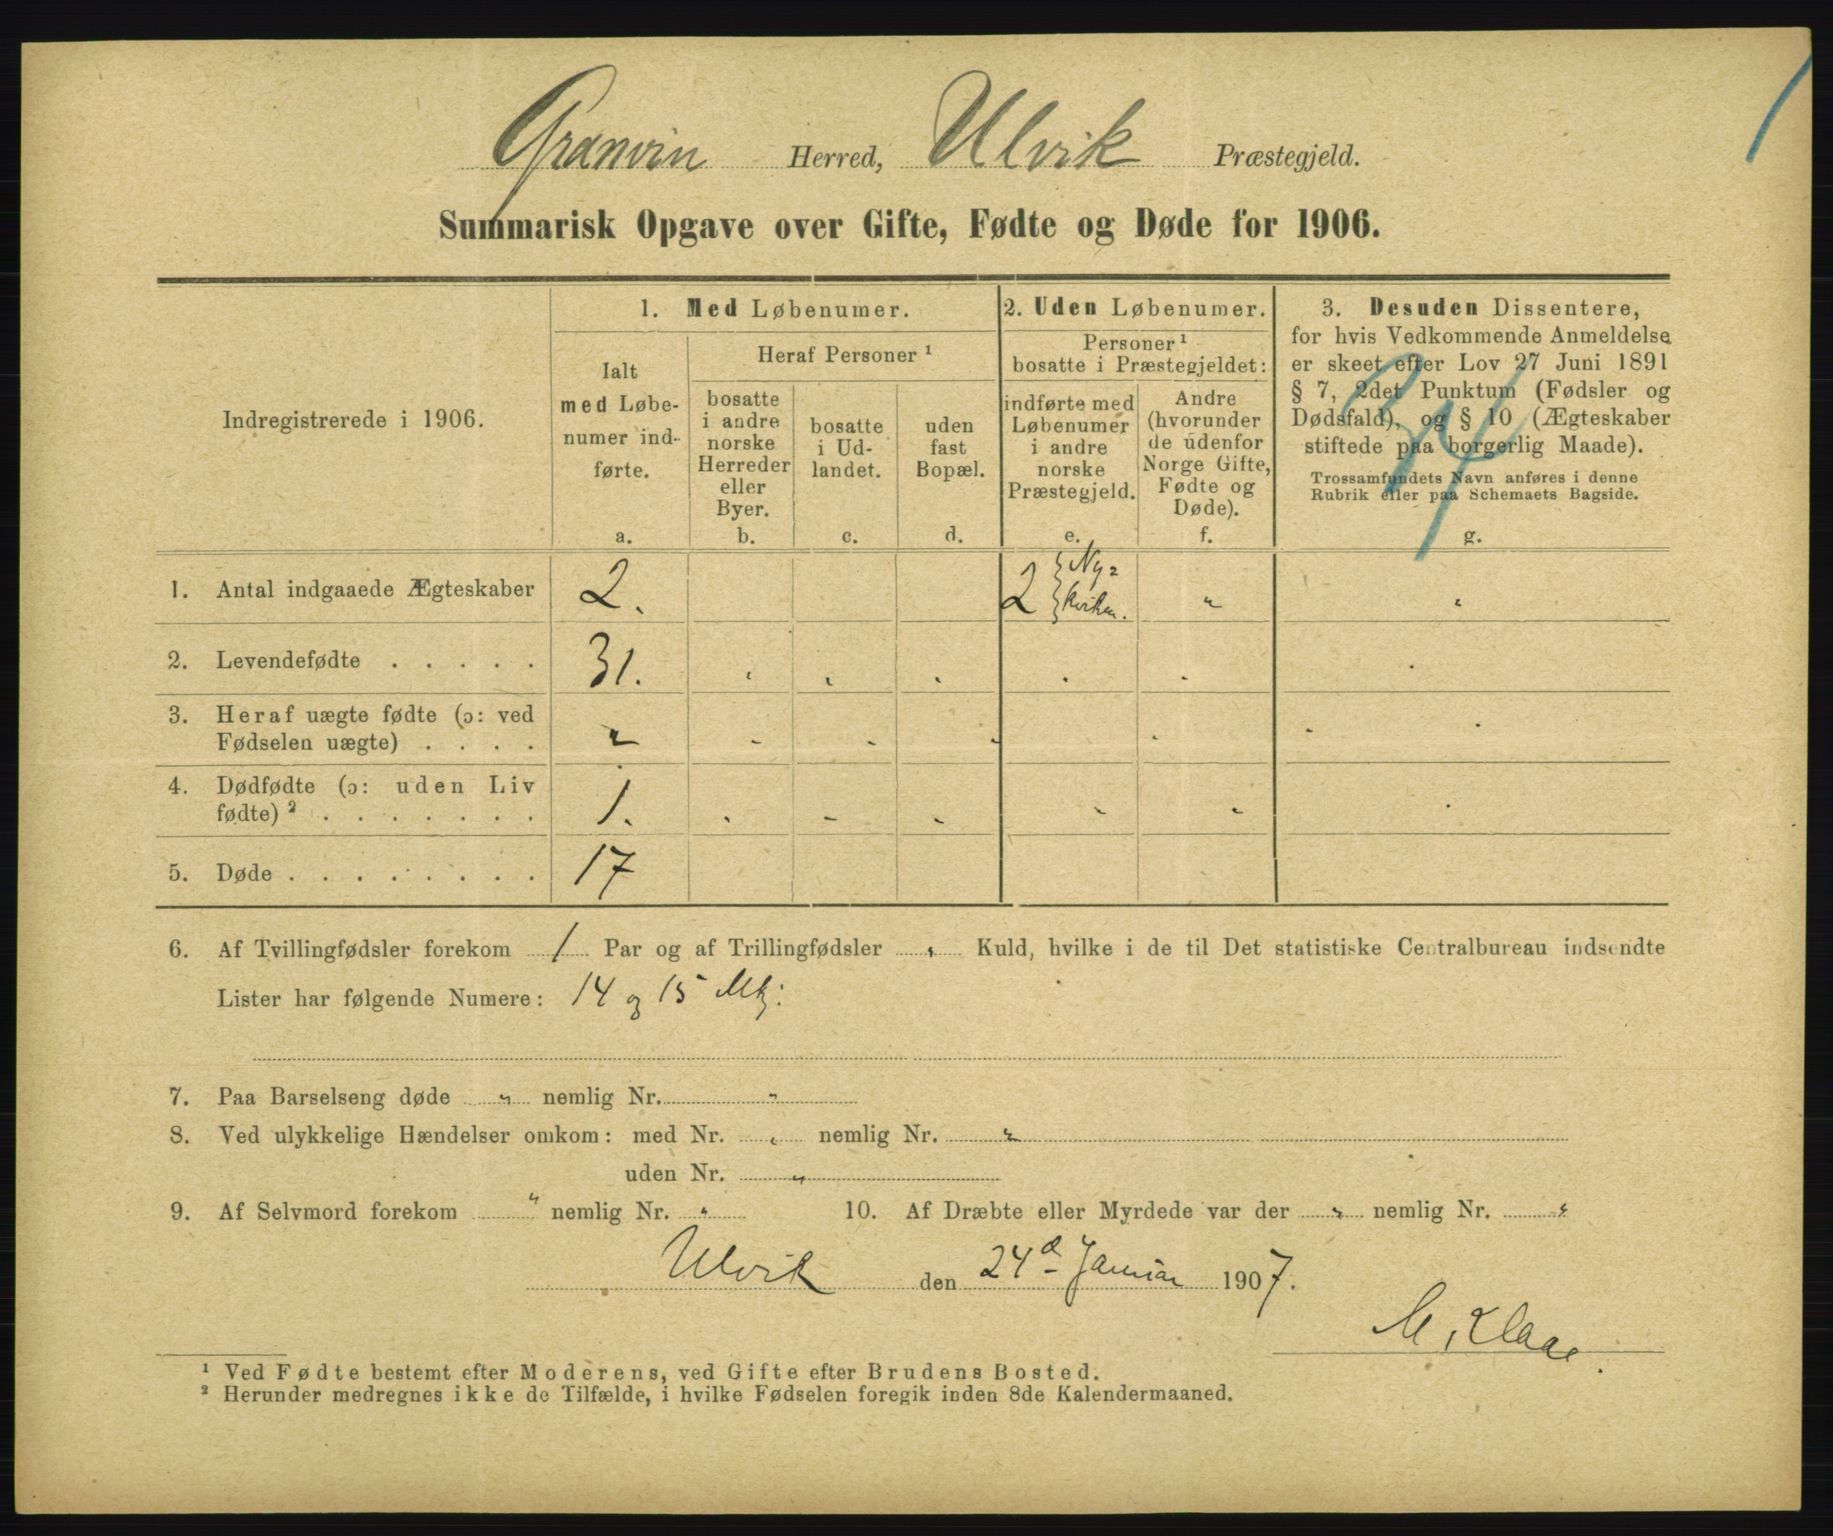 1
Granvin Herred, Ulvik Præstegjeld.
Summarisk Opgave over Gifte, Fødte og Døde for 1906.
Indregistrerede i 1906.
1. Med Løbenumer.
Ialt
med Løbe-
numer ind-
førte.
a.
Heraf Personer ¹
bosatte
i andre
norske
Herreder
eller
Byer.
b.
bosatte
i Ud-
landet.
c.
uden
fast
Bopæl.
d.
2. Uden Løbenumer.
Personer ¹
bosatte i Præstegjeldet:
indførte med
Løbenumer
i andre
norske
Præstegjeld.
e.
Andre
(hvorunder
de udenfor
Norge Gifte,
Fødte og
Døde).
f.
3. Desuden Dissentere,
for hvis Vedkommende Anmeldelse
er skeet efter Lov 27 Juni 1891
§ 7, 2det Punktum (Fødsler og
Dødsfald), og § 10 (Ægteskaber
stiftede paa borgerlig Maade).
Trossamfundets Navn anføres i denne
Rubrik eller paa Schemaets Bagside.
g.
1. Antal indgaaede Ægteskaber 2. 2 " "
2. Levendefødte . . . . . 31. " " " " " "
3. Heraf uægte fødte (ɔ: ved
Fødselen uægte) . . . . " " " " " " "
4. Dødfødte (ɔ: uden Liv
fødte) ² . . . . . . . 1. " " " " " "
5. Døde . . . . . . . . 17
6. Af Tvillingfødsler forekom 1 Par og af Trillingfødsler " Kuld, hvilke i de til Det statistiske Centralbureau indsendte
Lister har følgende Numere: 14 og 15 Mkj:
7. Paa Barselseng døde " nemlig Nr. "
8. Ved ulykkelige Hændelser omkom: med Nr. " nemlig Nr. "
uden Nr. "
9. Af Selvmord forekom " nemlig Nr. " 10. Af Dræbte eller Myrdede var der " nemlig Nr. "
Ulvik den 24d Januar 1907.
¹ Ved Fødte bestemt efter Moderens, ved Gifte efter Brudens Bosted.
² Herunder medregnes ikke de Tilfælde, i hvilke Fødselen foregik inden 8de Kalendermaaned.